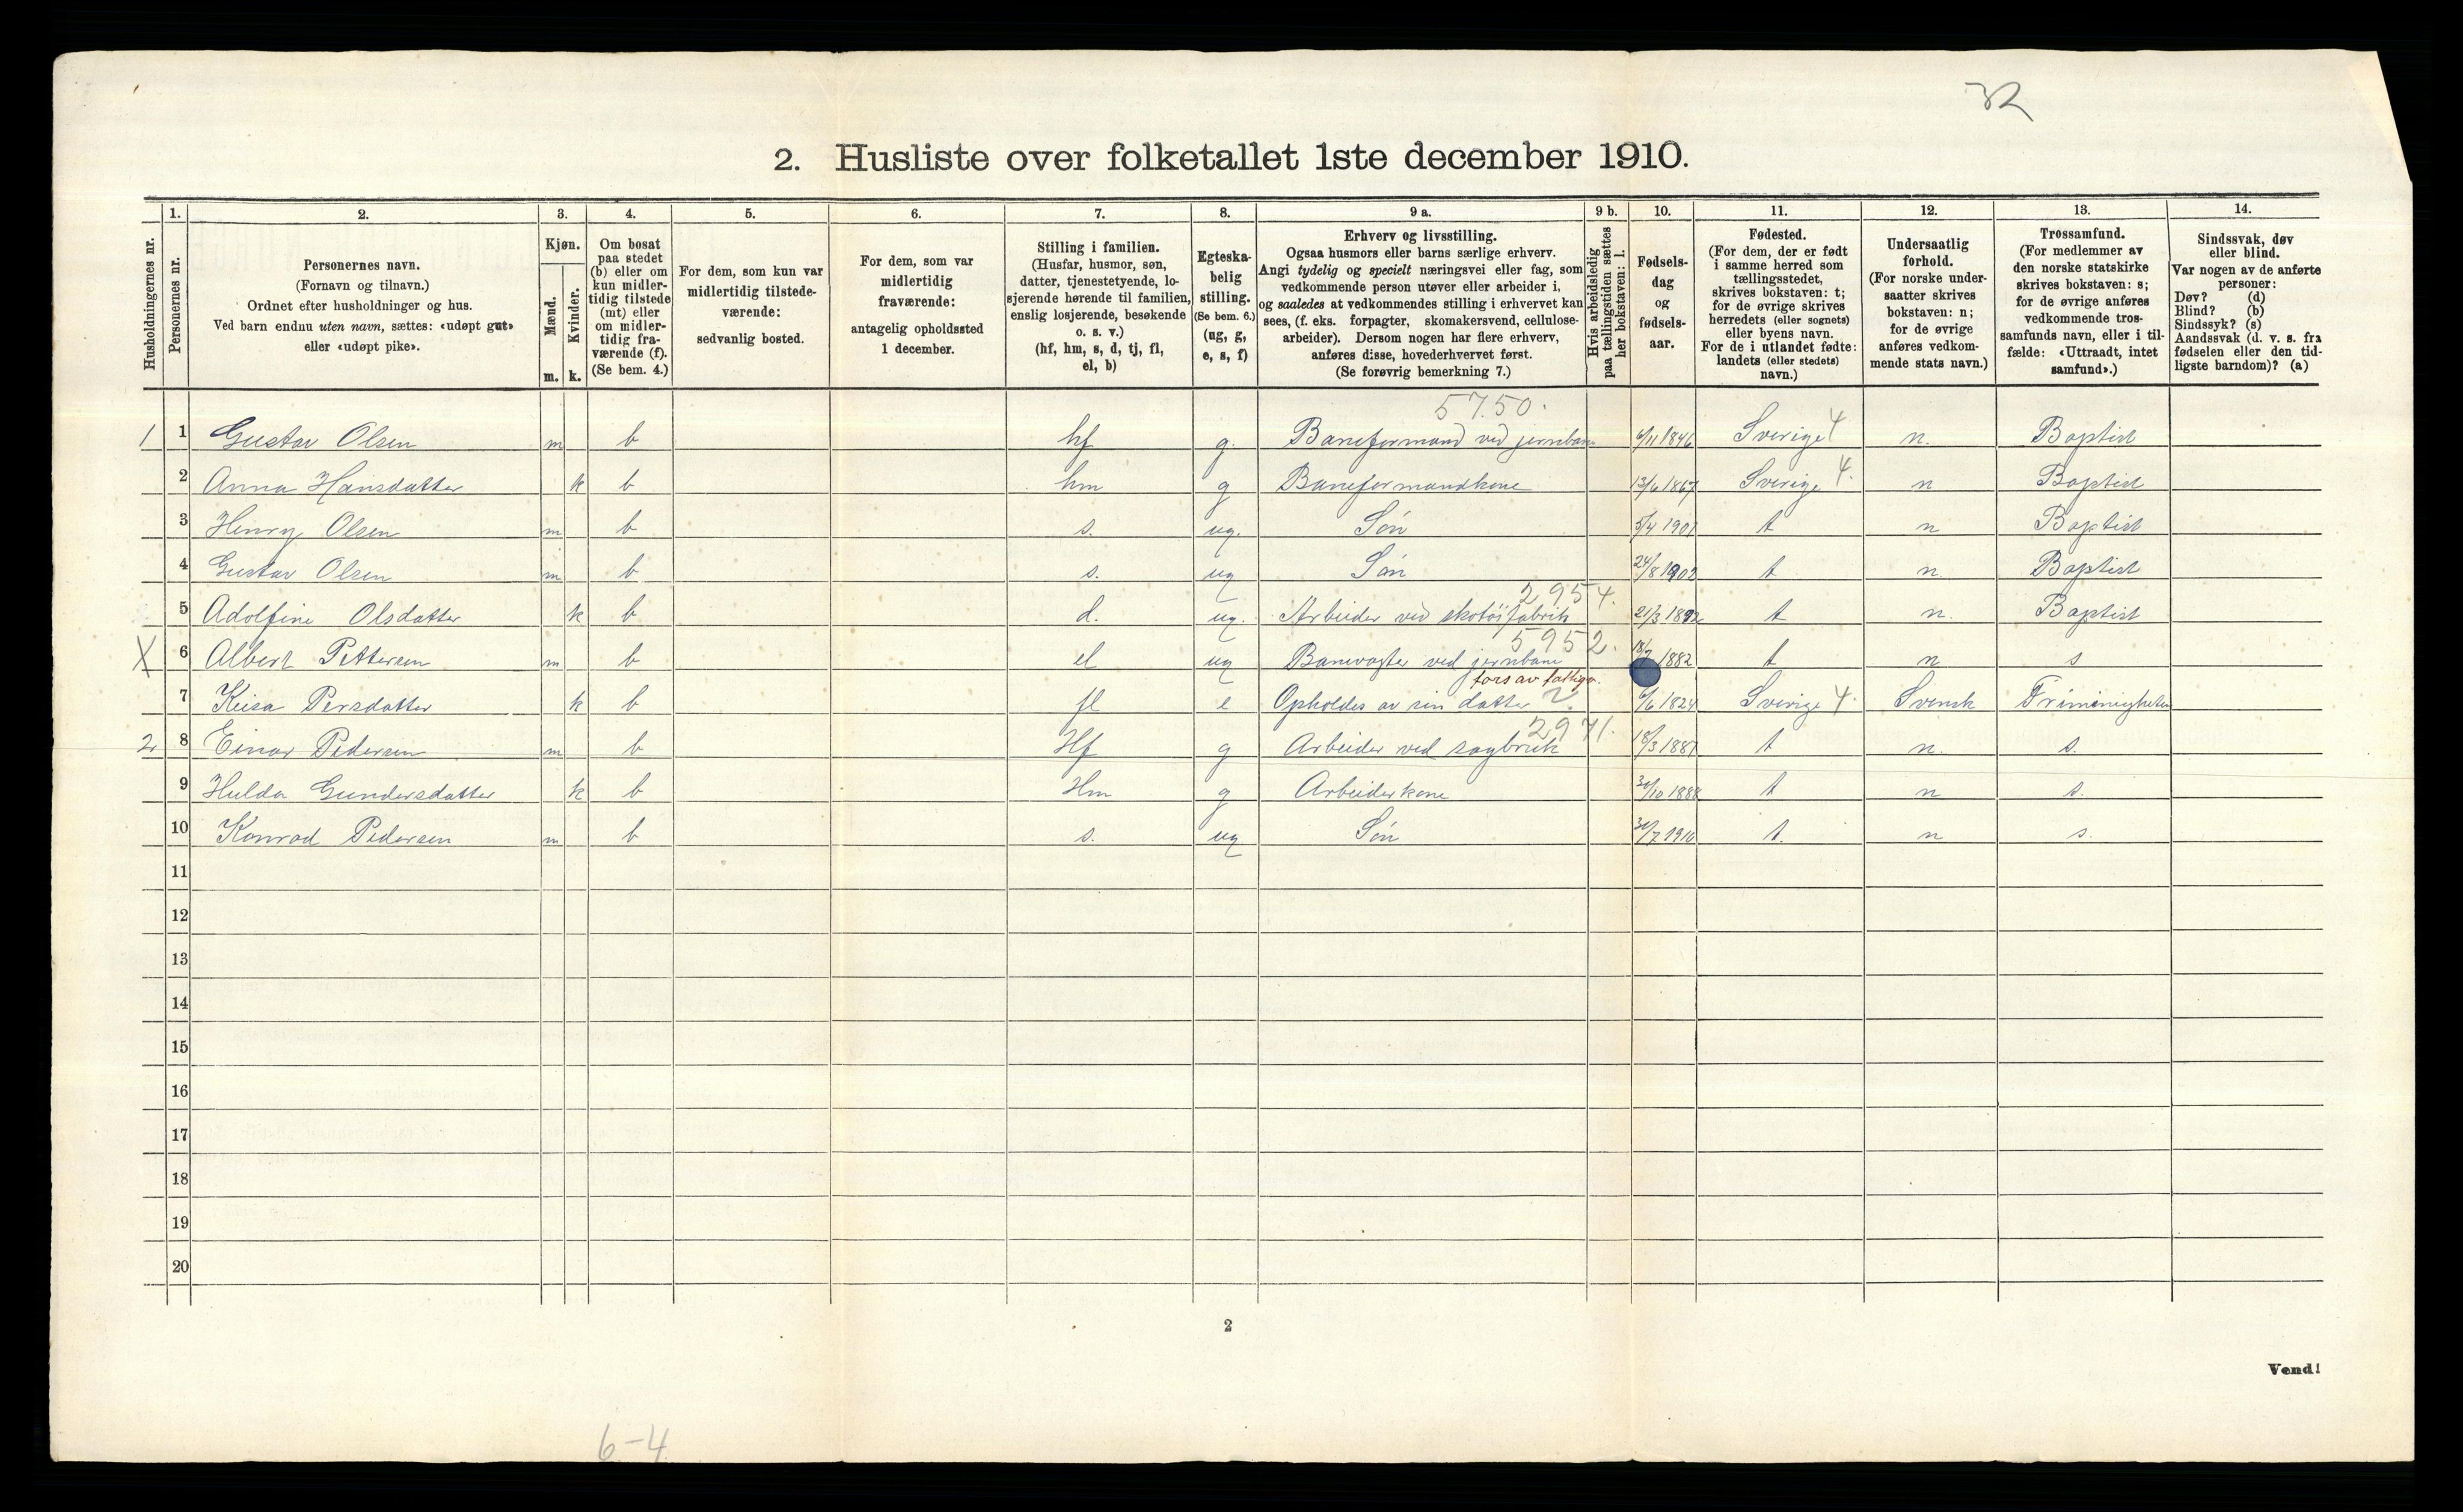 32
2. Husliste over folketallet 1ste december 1910.
Husholdningernes nr.
1. Personernes nr.
2. Personernes navn.
(Fornavn og tilnavn.)
Ordnet efter husholdninger og hus.
Ved barn endnu uten navn, sættes: «udøpt gut»
eller «udøpt pike».
3. Kjøn.
Mænd. m.
Kvinder. k.
4. Om bosat
paa stedet
(b) eller om
kun midler-
tidig tilstede
(mt) eller
om midler-
tidig fra-
værende (f).
(Se bem. 4.)
5. For dem, som kun var
midlertidig tilstede-
værende:
sedvanlig bosted.
6. For dem, som var
midlertidig
fraværende:
antagelig opholdssted
1 december.
7. Stilling i familien.
(Husfar, husmor, søn,
datter, tjenestetyende, lo-
sjerende hørende til familien,
enslig losjerende, besøkende
o. s. v.)
(hf, hm, s, d, tj, fl,
el, b)
8. Egteska-
belig
stilling.
(Se bem. 6.)
(ug, g,
e, s, f)
9 a. Erhverv og livsstilling.
Ogsaa husmors eller barns særlige erhverv.
Angi tydelig og specielt næringsvei eller fag, som
vedkommende person utøver eller arbeider i,
og saaledes at vedkommendes stilling i erhvervet kan
sees, (f. eks. forpagter, skomakersvend, cellulose-
arbeider). Dersom nogen har flere erhverv,
anføres disse, hovederhvervet først.
(Se forøvrig bemerkning 7.)
9 b. Hvis arbeidsledig
paa tællingstiden sættes
her bokstaven: l.
10. Fødsels-
dag
og
fødsels-
aar.
11. Fødested.
(For dem, der er født
i samme herred som
tællingsstedet,
skrives bokstaven: t;
for de øvrige skrives
herredets (eller sognets)
eller byens navn.
For de i utlandet fødte:
landets (eller stedets)
navn.)
12. Undersaatlig
forhold.
(For norske under-
saatter skrives
bokstaven: n;
for de øvrige
anføres vedkom-
mende stats navn.)
13. Trossamfund.
(For medlemmer av
den norske statskirke
skrives bokstaven: s;
for de øvrige anføres
vedkommende tros-
samfunds navn, eller i til-
fælde: «Uttraadt, intet
samfund».)
14. Sindssvak, døv
eller blind.
Var nogen av de anførte
personer:
Døv? (d)
Blind? (b)
Sindssyk? (s)
Aandssvak (d. v. s. fra
fødselen eller den tid-
ligste barndom)? (a)
5750.
1 1 Gustav Olsen m b hf g. Baneformand ved jernbane 6/11 1846 Sverige 4 n. Baptist
2 Anna Hansdatter k b hm g Baneformandkone 13/6 1867 Sverige 4. n Baptist
3 Henry Olsen m b s. ug. Søn 5/4 1901 t n Baptist
4 Gustav Olsen m b s. ug Søn 24/8 1902 t n. Baptist
2954.
5 Adolfine Olsdatter k b d. ug. Arbeider ved skotøifabrik 21/3 1892 t n. Baptist
5952.
X 6 Albert Pettersen m b el ug Banevogter ved jernbane 1882 t n s
fors av fattigv.
7 Kisa Persdatter k b fl e Opholdes av sin datter 2. 6/6 1824 Sverige 4. Svensk Frimenigheten
2971.
2 8 Einar Pedersen m b Hf g Arbeider ved sagbruk 18/3 1887 t n. s.
9 Hulda Gundersdatter k b Hm g Arbeiderkone 30/10 1888 t n s.
10 Konrad Pedersen m b s. ug Søn 30/7 1910 t. n s.
11
12
13
14
15
16
17
18
19
20
2
Vend!
6-4